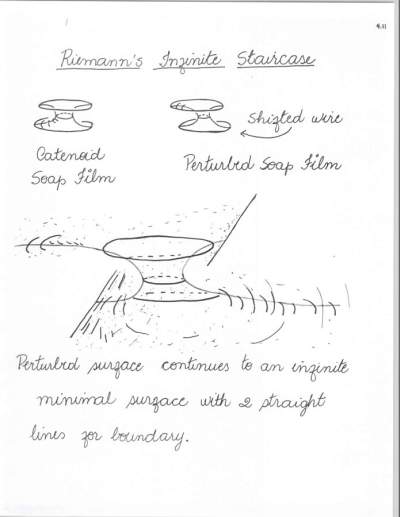 4.11
Riemann's Infinite Staircase
Shifted wire
Catenoid
Soap Film
Perturbed Soap Film
Perturbed surface continues to an infinite
minimal surface with 2 straight
lines for boundary.